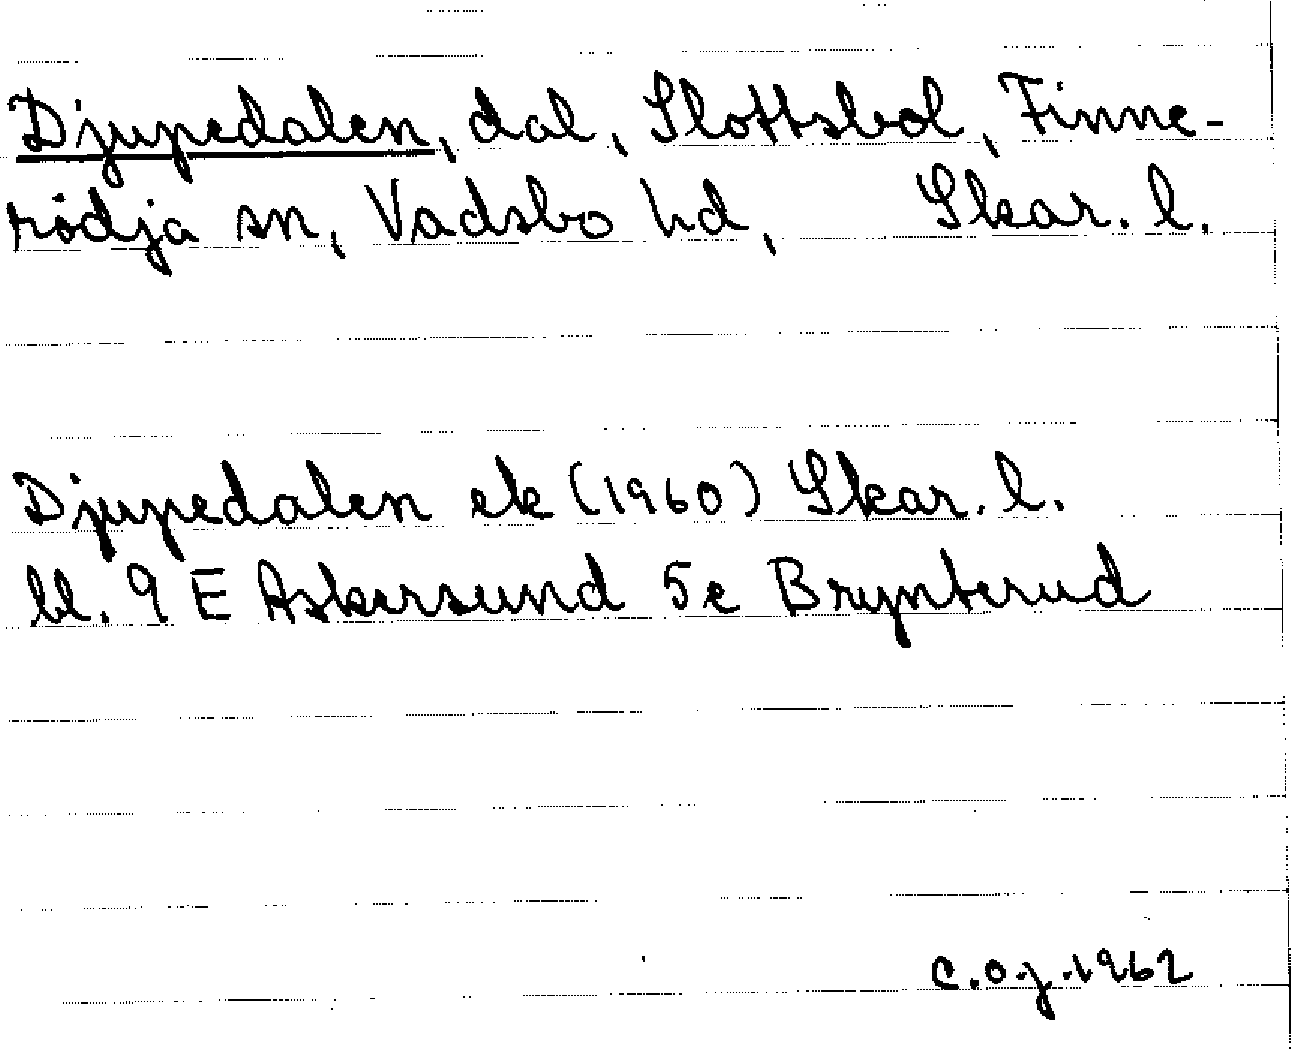 Djupedalen, dal, Slottsbol, Finne-
rödja sn, Vadsbo hd, Skar. l.
Djupedalen ek (1960) Skar. l.
bl. 9 E Askersund 5e Brynterud
C.O.J. 1962